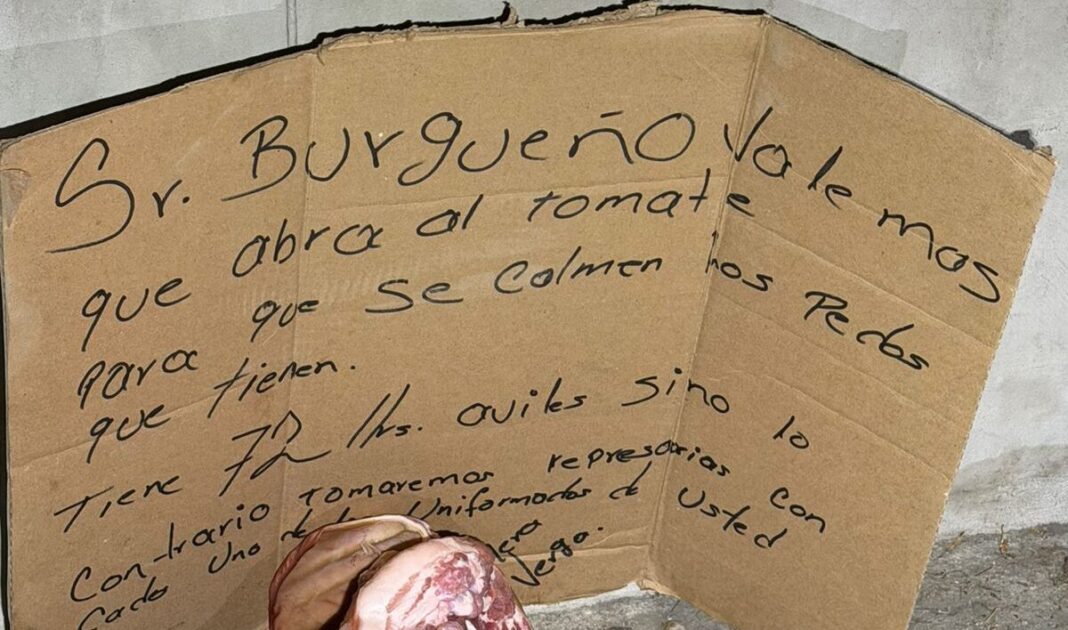 Sr. Burgueño Vale mas
que abra al tomate
para que se colmen los Pedos
que tienen.
Tiene 72 Hrs. aviles sino lo
Contrario tomaremos represarias con
Cada Uno de los Uniformados de Usted
Verga.